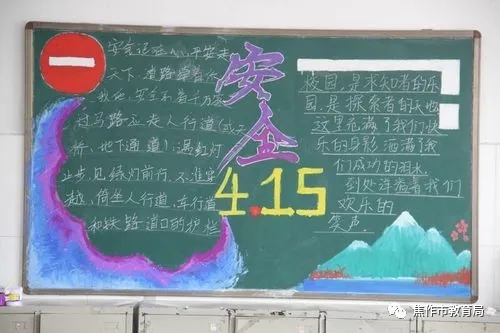 安全记在心,平安走
天下。道路牵着你
我他,安全 千万家
过马路应走人行道(或天
桥、地下通道)遇红灯
止步,见绿灯前行,不准穿
越、倚坐人行道、车行道
和铁路道口的护栏
安全
4.15
校园,是求知者的乐
园,是探索者的天地
这里充满了我们快
乐的身影,洒满了我
们成功的泪水
到处洋溢着我们
欢乐的
笑声.
焦作市教育局